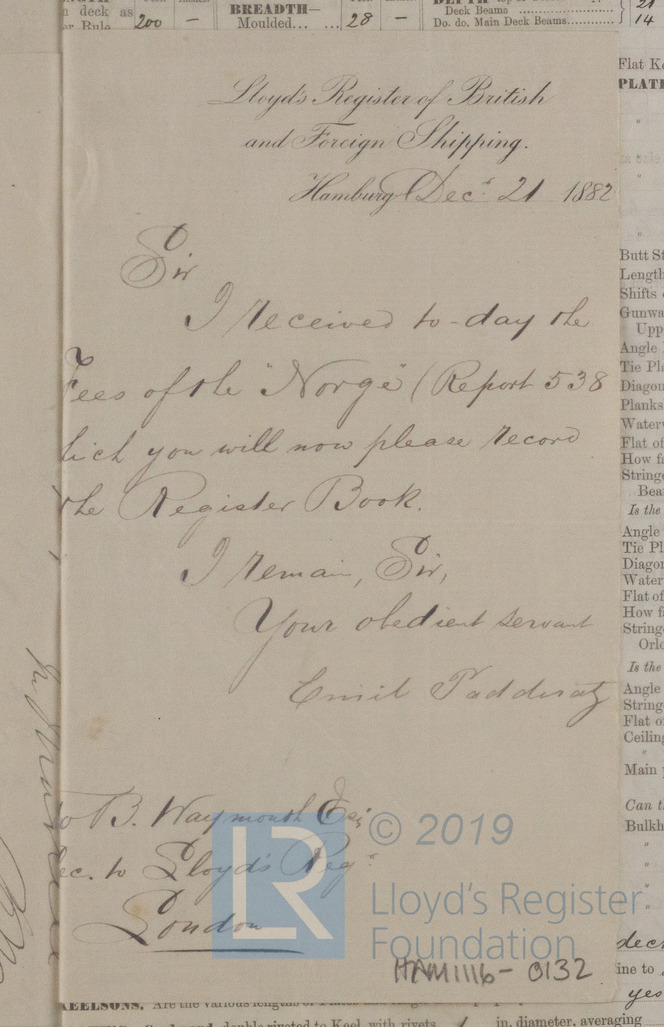 deck as
200 —
BREADTH—
Moulded... ...
28 —
Deck Beams
Do. do. Main Deck Beams
21
14
Lloyd's Register of British
and Foreign Shipping.
Hamburg Decr. 21 1882
Sir
I received to-day the
Fees of the "Norge" (Report 538
hich you will now please record
the Register Book.
I remain, Sir,
Your obedient servant
Emil Padderatz
to B. Waymouth Esq
ec. to Lloyd's Regr
London
© 2019
LR
Lloyd's Register
Foundation
HAM1116-0132
Flat Ke
PLATE
Butt St
Length
Shifts
Gunwa
Upp
Angle
Tie Pla
Diagon
Planks
Waterw
Flat of
How fa
Stringe
Bea
Is the
Angle
Tie Pl
Diagon
Water
Flat of
How fa
Stringe
Orlo
Is the
Angle
String
Flat o
Ceiling
Main
Can t
Bulkh
deck
ine to
yes
KEELSONS. Are the various lengths of
double riveted to Keel, with rivets
in. diameter, averaging